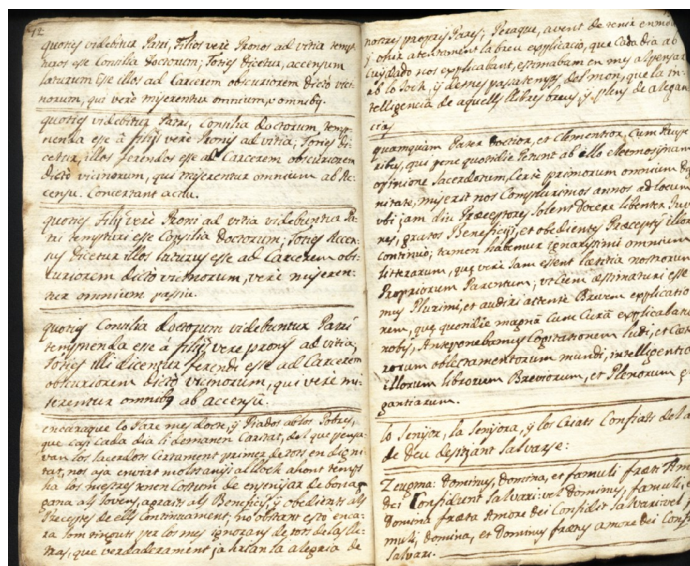 12
quoties videbitur Patri, Filios verè Pronos ad vitia tempt
uros esse Consilia Doctorum, Toties dicetur, accensum
laturum esse illos ad Carcerem obscuriorem dicto vici
norum, qui verè miserentur omnium
quoties videbitur Patri, Consilia Doctorum, temp
nenda esse à filijs verè Pronis ad vitia, Toties di
cetur, illos ferendos esse ad Carcerem obscuriorem
dicto vicinorum, qui miserentur omnium ab Ac
censu. Concertant actiu.
quoties Filij verè Proni ad vitia videbuntur Pa
tri tempturi esse Consilia Doctorum; Toties Accen
sus dicetur illos laturus esse ad Carcerem obs
curiorem dicto vicinorum, verè miseren
tur omnium passiu.
quoties Consilia Doctorum videbuntur Patri
temnenda esse à filijs verè pronis ad vitia,
Toties illi dicentur ferendi esse ad Carcerem
obscuriorem dicto vicinorum, qui verè mi
serentur omnibus ab accensu.
encaraque lo Pare mes docte, y Piados als Pobres,
que casi cada dia li demanen Caritat, del que pensa
van los sacerdots certament primer de tots en digni
tat, nos aja enviat molts anys al lloch ahont temps
ha los mestres tenen costum de ensenyar de bona
gana als Jovens, agraits als Beneficis, y obedients als
Preceptes de ells Continuament; no obstant està enca
ra som tinguts per los mes ignorans de totas las lle
tras, que verdaderament ja foran la alegria de
nostres propris Pares; Peraque, avent de venir
y ohir atentament la breu explicació, que cada dia ab
cuydado nos explicaban, estimabam en mes
ab lo Joch, y demes passatemps del mon, que la in
telligencia de aquells llibres breus, y plens de elegan
cias
quamquàm Pater doctior, et clementior, cum Paupe
ribus, qui penè quotidie Petunt ab illo eleemosynam
opinione sacerdotum, certè primorum omnium dig
nitate, miserit nos complurimos annos ad locum
ubi jam diu Præceptores solent docere libenter Juve
nes, gratos Beneficijs, et obedientes Præceptis illorum
continuò; tamen habemur ignarissimi omnium
litterarum, quæ verè jam essent lætitia nostrorum
Propriorum Parentum; æstimaturi esse
mus Plurimi, et audiri attentè Brevem explicatio
nem, quæ quotidie magna cum cura explicabatur
nobis, Anteponebamus cogitationem ludi, et cæte
rorum oblectamentorum mundi, intelligentiæ
illorum librorum Breviorum, et Plenorum
gantiarum.
lo Senyor, la Senyora, y los Criats Confiats del a
de deu desitjant salvarse:
Zeugma: dominus, domina, et famuli freti Amo
dei Confidunt salvari: vel dominus, famuli, e
domina freta Amore dei Confidit salvari: vel
muli, domina, et dominus fretus amore dei Confi
salvari.